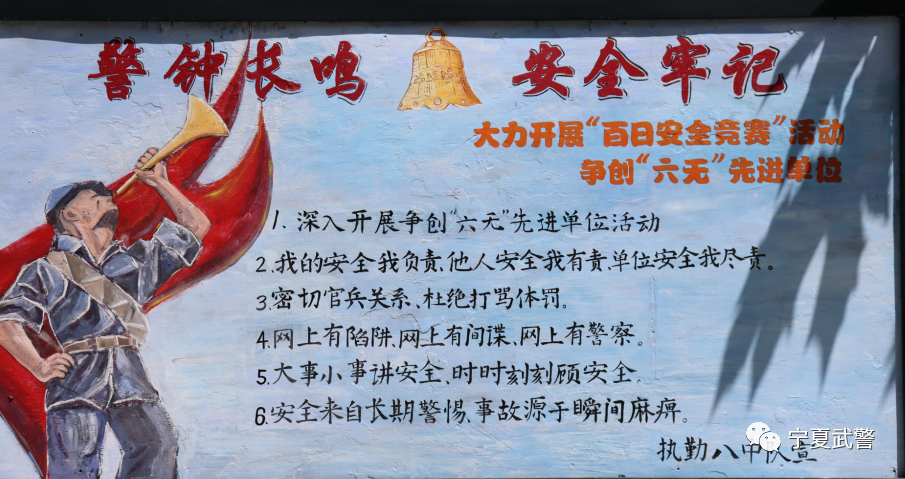 警钟长鸣 安全牢记
大力开展“百日安全竞赛”活动
争创“六无”先进单位
1. 深入开展争创“六无”先进单位活动
2. 我的安全我负责、他人安全我有责、单位安全我尽责。
3. 密切官兵关系、杜绝打骂体罚。
4. 网上有陷阱、网上有间谍、网上有警察。
5. 大事小事讲安全、时时刻刻顾安全。
6. 安全来自长期警惕、事故源于瞬间麻痹。
执勤八中队宣
宁夏武警